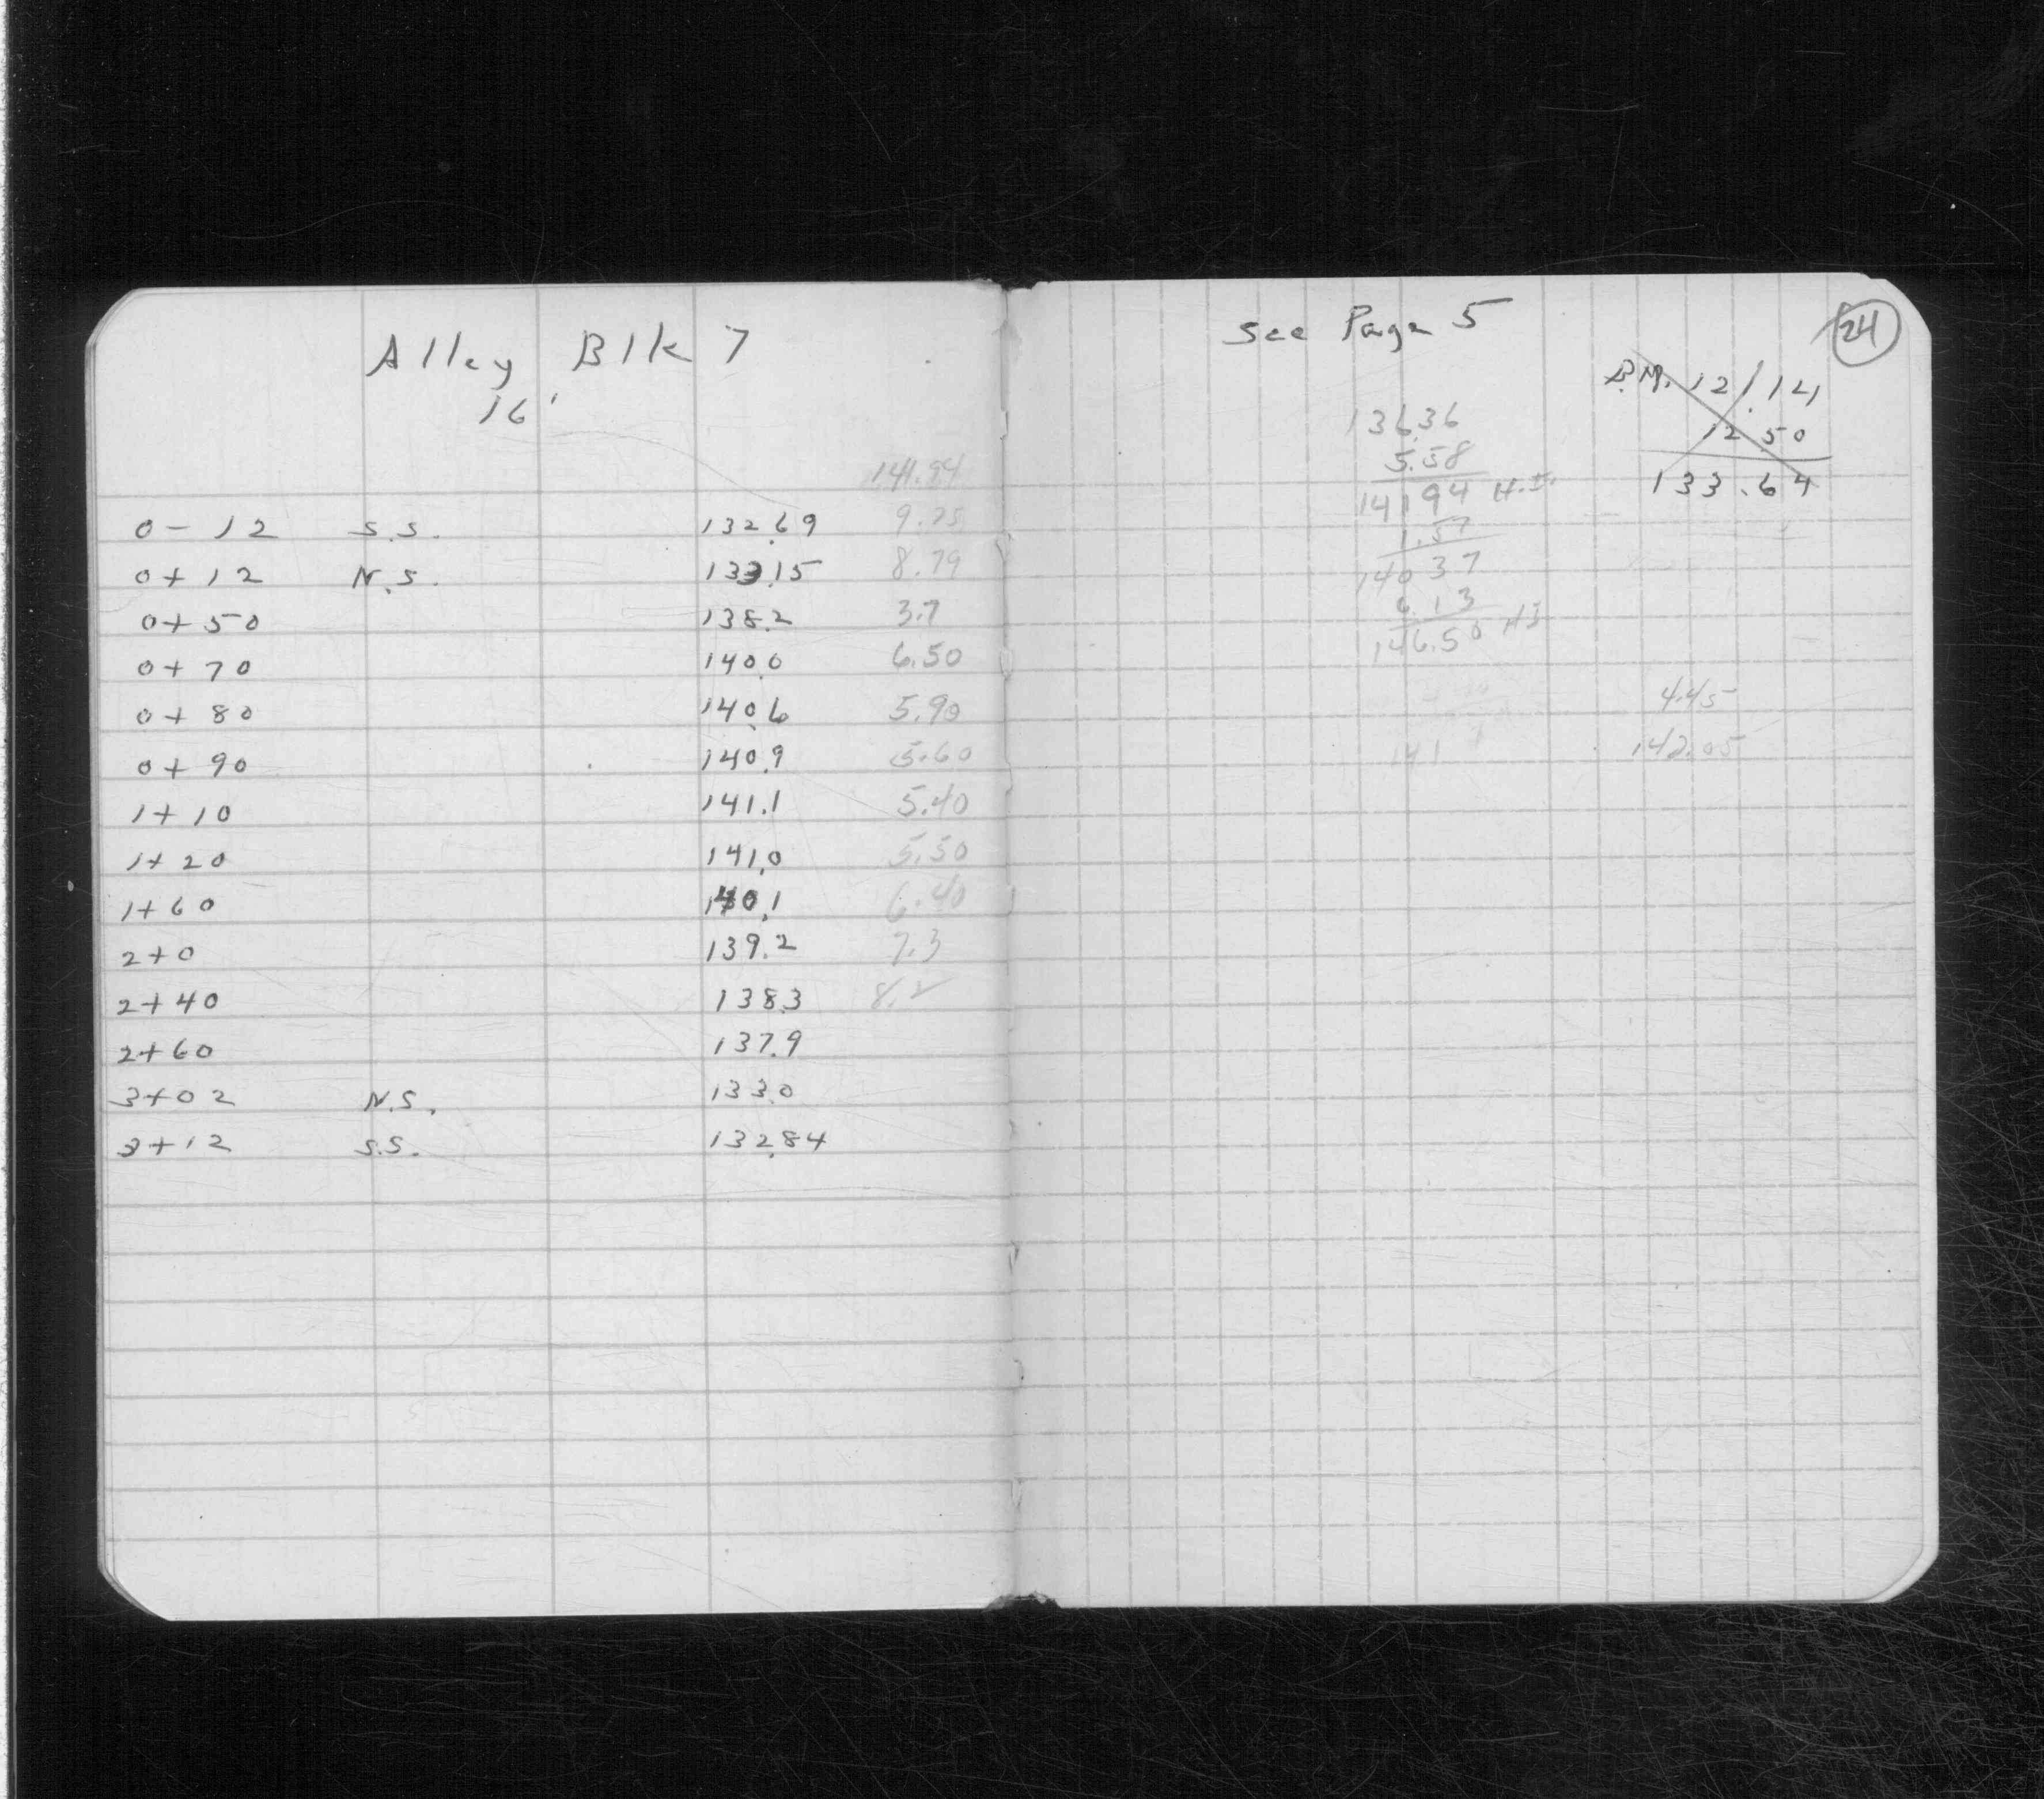 Alley Blk 7
16'
141.94
0 - 12 S.S. 132.69 9.25
0 + 12 N.S. 133.15 8.79
0 + 50 138.2 3.7
0 + 70 140.0 6.50
0 + 80 140.6 5.90
0 + 90 140.9 5.60
1 + 10 141.1 5.40
1 + 20 141.0 5.50
1 + 60 140.1 6.40
2 + 0 139.2 7.3
2 + 40 138.3 8.2
2 + 60 137.9
3 + 02 N.S. 133.0
3 + 12 S.S. 132.84
See Page 5
24
B.M. 121.14
12.50
133.64
136.36
5.58
141.94 H.I.
1.57
140.37
6.13
146.50 HI
4.45
141
142.05